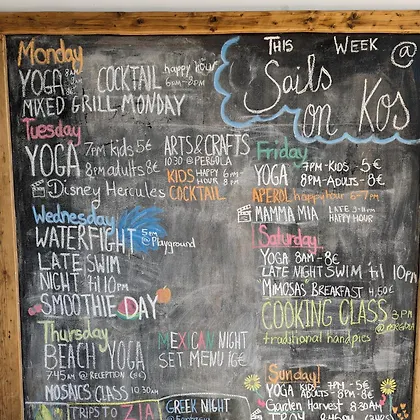 THIS WEEK @
Sails on Kos
Monday
YOGA
COCKTAIL happy hour
6PM-8PM
MIXED GRILL MONDAY
Tuesday
YOGA 7PM kids 5€
8PM adults 8€
ARTS & CRAFTS
1030 @ PERGOLA
KIDS HAPPY 6PM-
COCKTAIL HOUR 8PM
Disney Hercules
Wednesday
WATERFIGHT 5PM
@ Playground
LATE SWIM
NIGHT til 10PM
SMOOTHIE DAY
Thursday
BEACH YOGA
7:45AM @ RECEPTION (8€)
MOSAICS CLASS 10:30AM
MEXICAN NIGHT
SET MENU 16€
TRIPS TO ZIA
GREEK NIGHT
Friday
YOGA 7PM-KIDS-5€
8PM-ADULTS-8€
APEROL happy hour 6-7PM
MAMMA MIA LATE 9-11PM
HAPPY HOUR
Saturday
YOGA 8AM-8€
LATE NIGHT SWIM til 10PM
MIMOSAS BREAKFAST 4,50€
COOKING CLASS 3PM
@ PERGOLA
traditional handpies
Sunday
YOGA KIDS 7PM-5€
ADULTS 8PM-8€
Garden Harvest 8:30AM
TROY